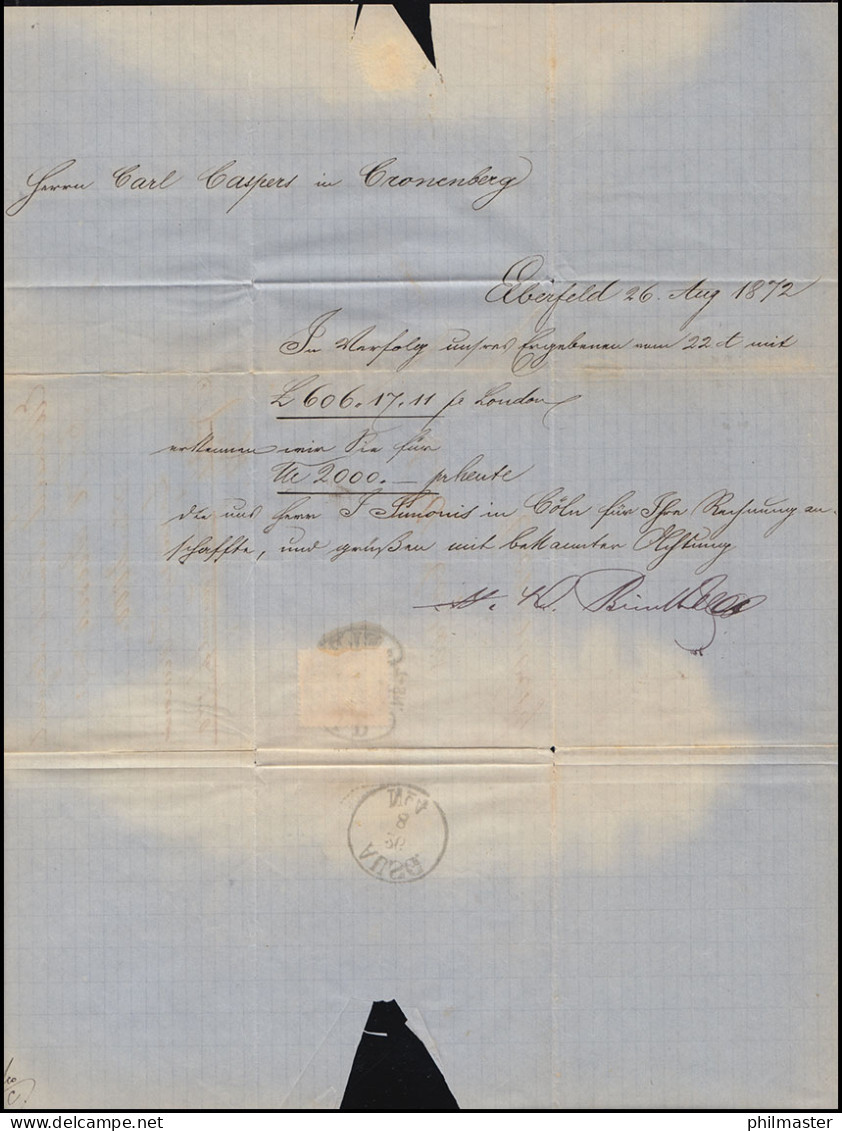 Herrn Carl Caspers in Cronenberg
Elberfeld 26. Aug 1872
In Verfolg unsres Ergebenen vom 22 t mit
£ 606.17.11 pr London
erkennen wir Sie für
2000.— pr heute
die uns Herr J Simonis in Cöln für Ihre Rechnung an-
schaffte, und grüßen mit bekannter Achtung
AUSG
8
N
philmaster